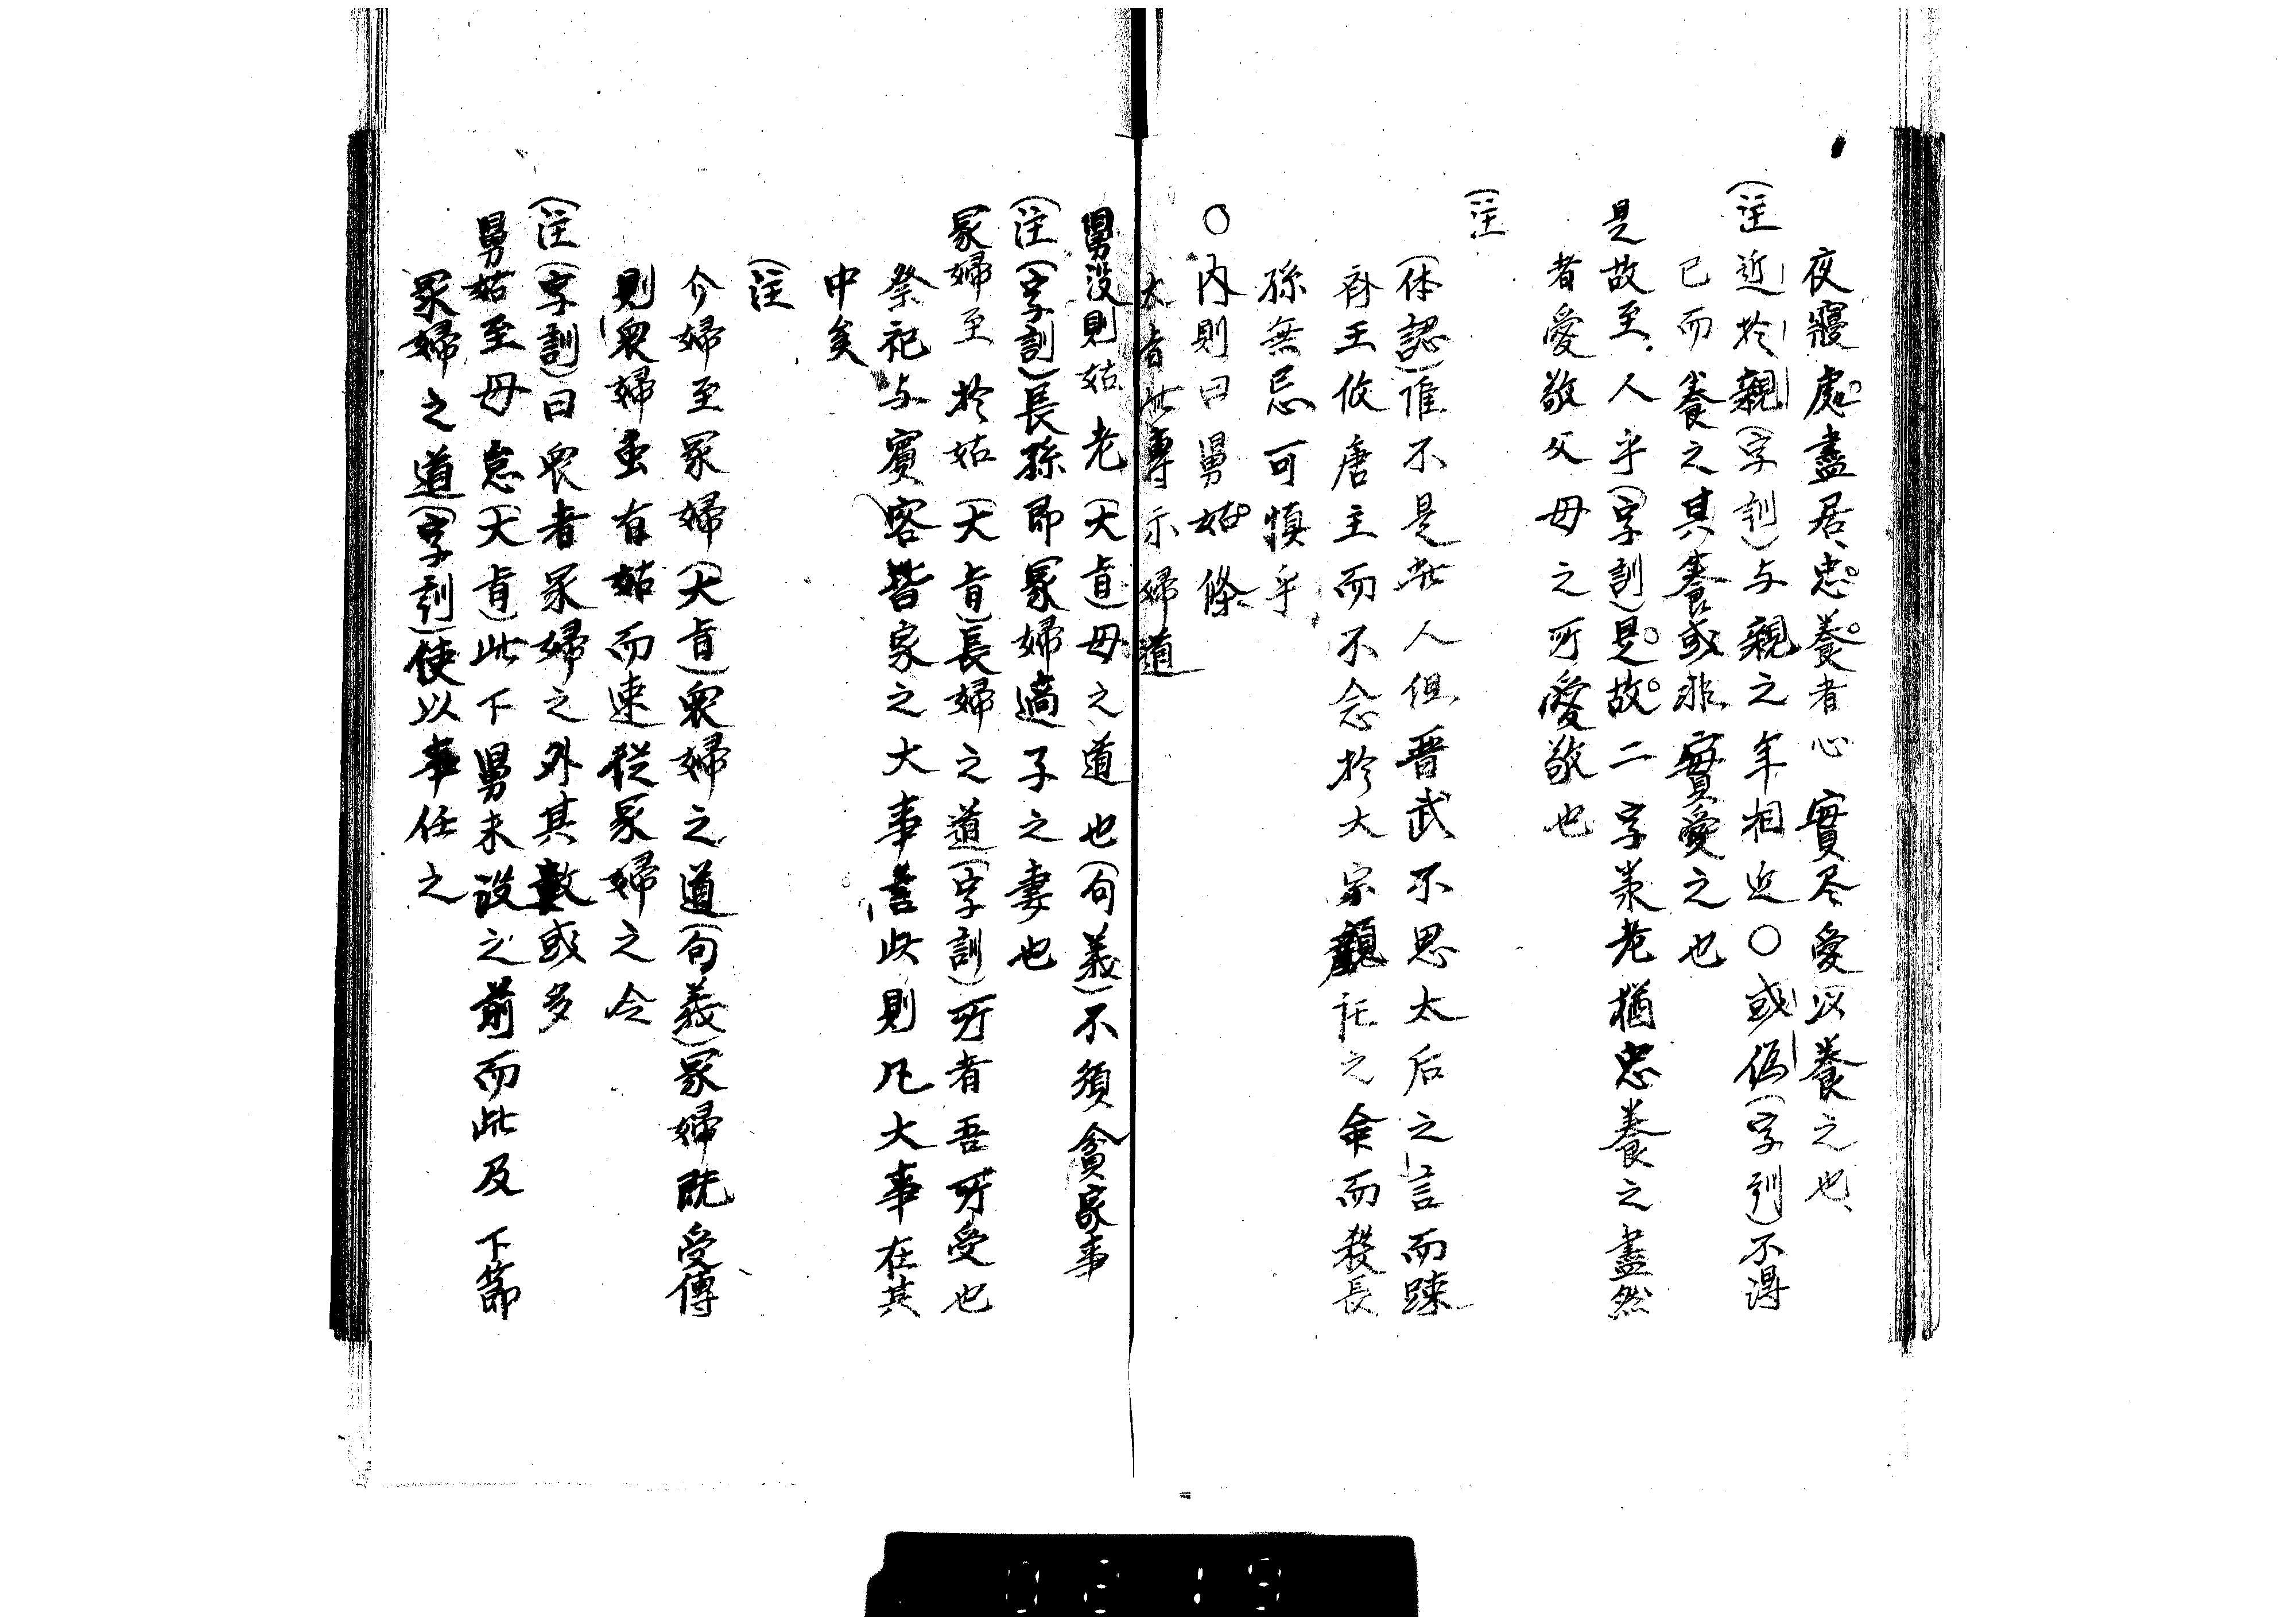 夜寢處盡居忠養者心實尽愛以養之也
(註)近於親(字訓)与親之年相近○或偽(字訓)不得
已而養之其養或非實愛之也
是故至人乎(字訓)是故二字承老猶忠養之盡然
者愛敬父母之所愛敬也
(註)
(体認)惟不是此人但晋武不思太后之言而踈
齐王攸唐主而不念於大宗親託之命而殺長
孫無忌可慎乎
○内則曰舅姑條
大旨此專示婦道
舅没則姑老(大旨)母之道也(句義)不須貪家事
(註)(字訓)長孫即冢婦適子之妻也
冢婦至於姑(大旨)長婦之道(字訓)所者吾所受也
祭祀与賓客皆家之大事言此則凡大事在其
中矣
(註)
介婦至冢婦(大旨)衆婦之道(句義)冢婦既受傳
則衆婦虽有姑而速從冢婦之令
(註)(字訓)曰衆者冢婦之外其數或多
舅姑至毋怠(大旨)此下舅未没之前而此及下節
冢婦之道(字訓)使以事任之